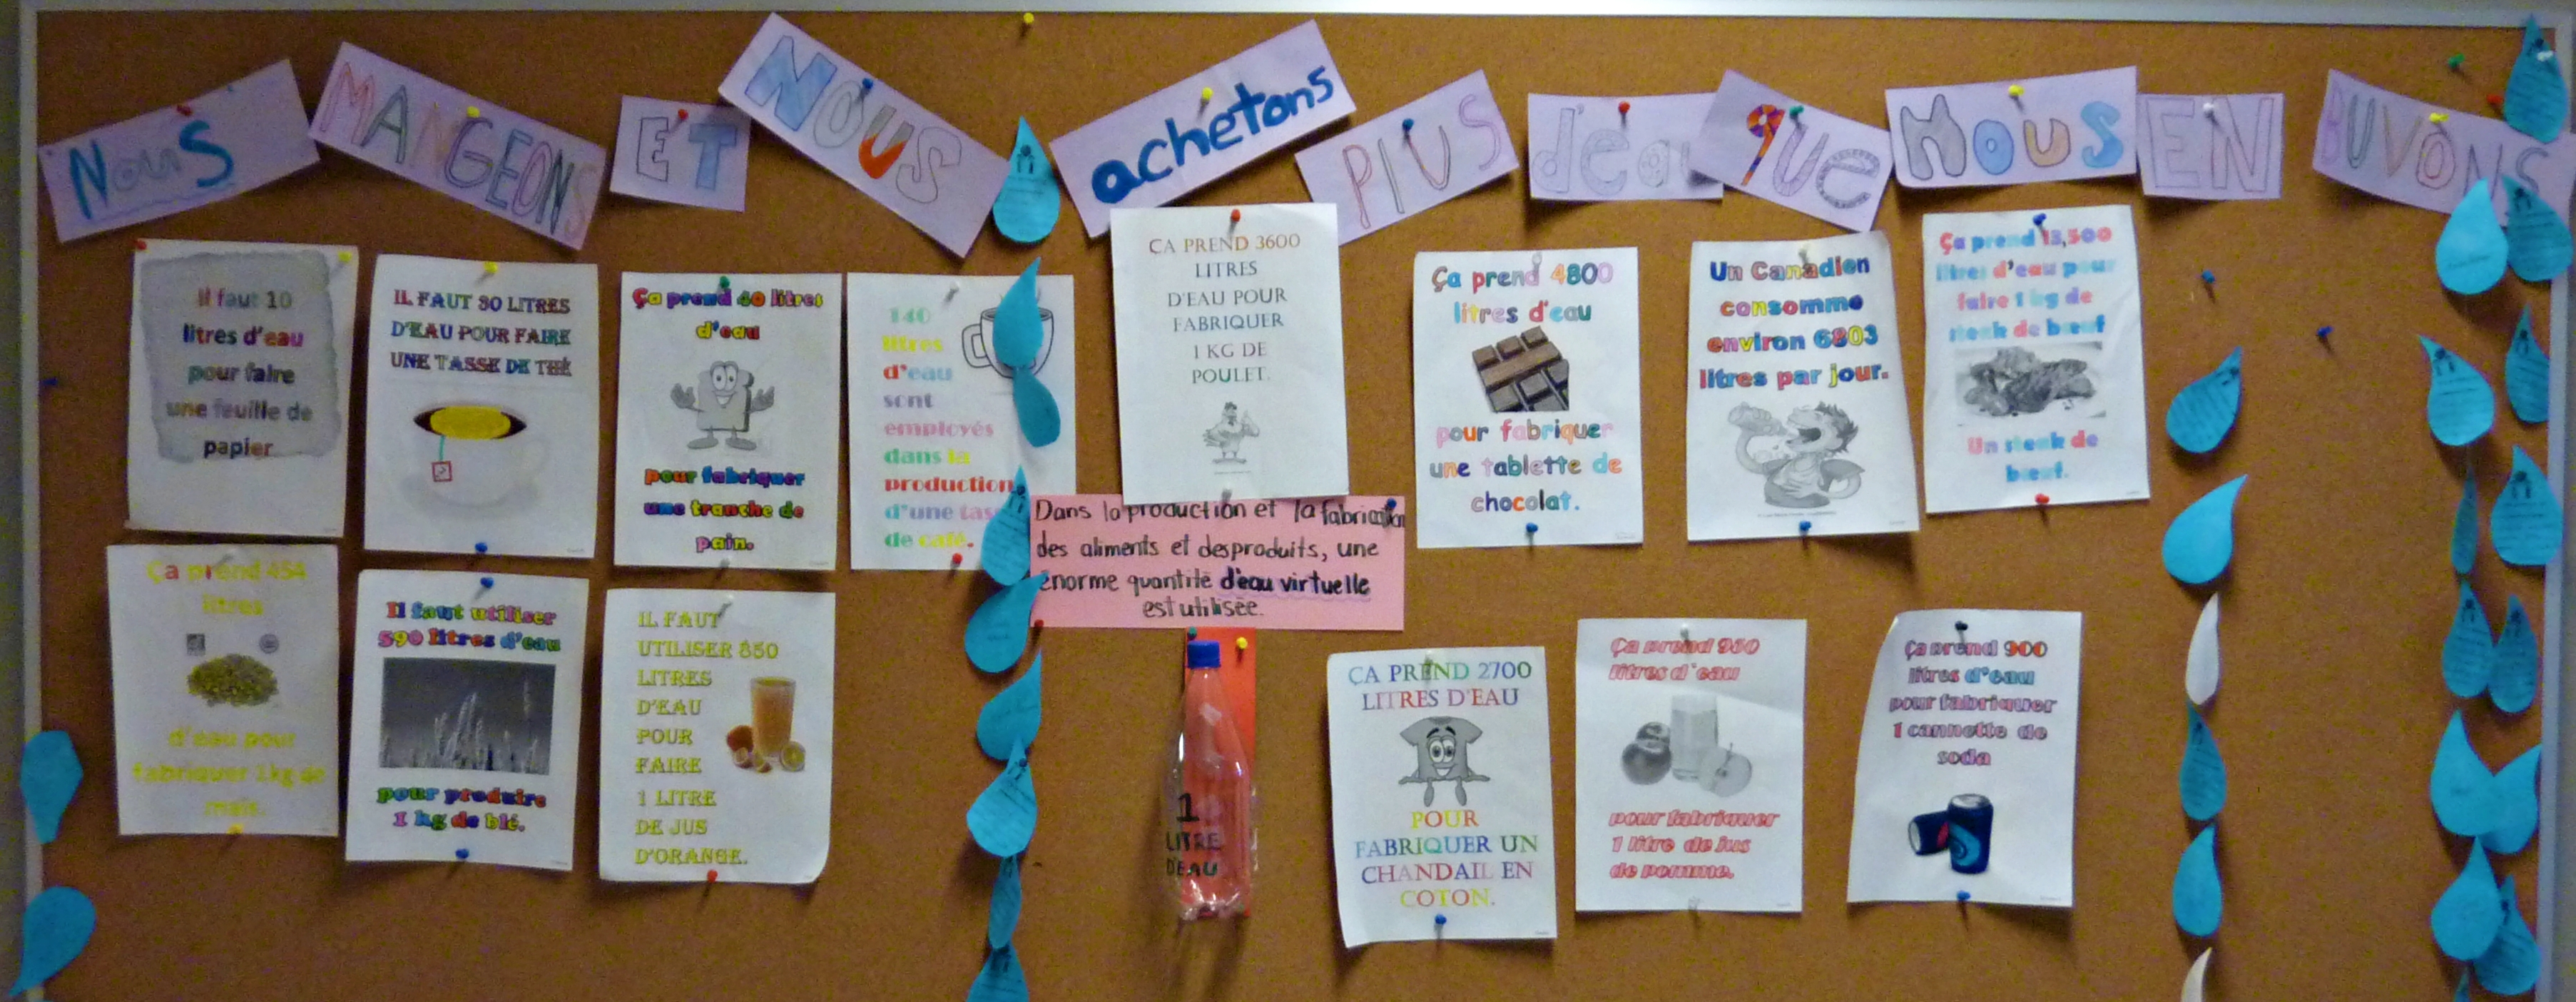 NouS MANGEONS ET NOUS achetons PlUS d'eau que Nous EN BUVONS
Il faut 10
litres d'eau
pour faire
une feuille de
papier
IL FAUT 30 LITRES
D'EAU POUR FAIRE
UNE TASSE DE THÉ
Ça prend 40 litres
d'eau
pour fabriquer
une tranche de
pain.
140
litres
d'eau
sont
employés
dans la
production
d'une tasse
de café.
ÇA PREND 3600
LITRES
D'EAU POUR
FABRIQUER
1 KG DE
POULET.
Ça prend 4800
litres d'eau
pour fabriquer
une tablette de
chocolat.
Un Canadien
consomme
environ 6803
litres par jour.
Ça prend 13,500
litres d'eau pour
faire 1 kg de
steak de bœuf
Un steak de
bœuf.
Dans la production et la fabrication
des aliments et des produits, une
énorme quantité d'eau virtuelle
est utilisée.
Ça prend 454
litres
d'eau pour
fabriquer 1kg de
maïs.
Il faut utiliser
590 litres d'eau
pour produire
1 kg de blé.
IL FAUT
UTILISER 850
LITRES
D'EAU
POUR
FAIRE
1 LITRE
DE JUS
D'ORANGE.
1
LITRE
D'EAU
ÇA PREND 2700
LITRES D'EAU
POUR
FABRIQUER UN
CHANDAIL EN
COTON.
Ça prend 950
litres d'eau
pour fabriquer
1 litre de jus
de pomme.
Ça prend 900
litres d'eau
pour fabriquer
1 cannette de
soda